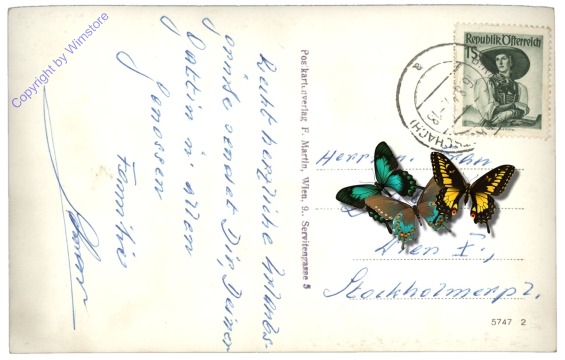 Copyright by Wimstore
Recht herzliche Urlaubs-
grüße sendet Dir, Deiner
Gattin u. allen
Genossen
Familie
Postkartenverlag F. Martin, Wien, 9., Servitengasse 5
Republik Österreich
1S
Herrn
Wien X.,
Stockholmerpl.
5747 2